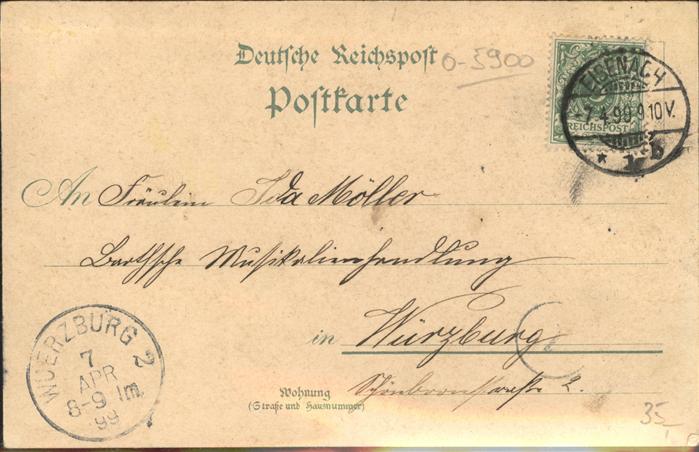 Deutsche Reichspost
Postkarte
0-5900
REICHSPOST
EISENACH
7.4.99 9-10V.
* 1 b
An Fräulein Ida Möller
Barth'sche Musikalienhandlung
in Würzburg
Wohnung
(Straße und Hausnummer)
Schönbornstraße 2.
WUERZBURG 2
7
APR
8-9 Nm.
99
35,-